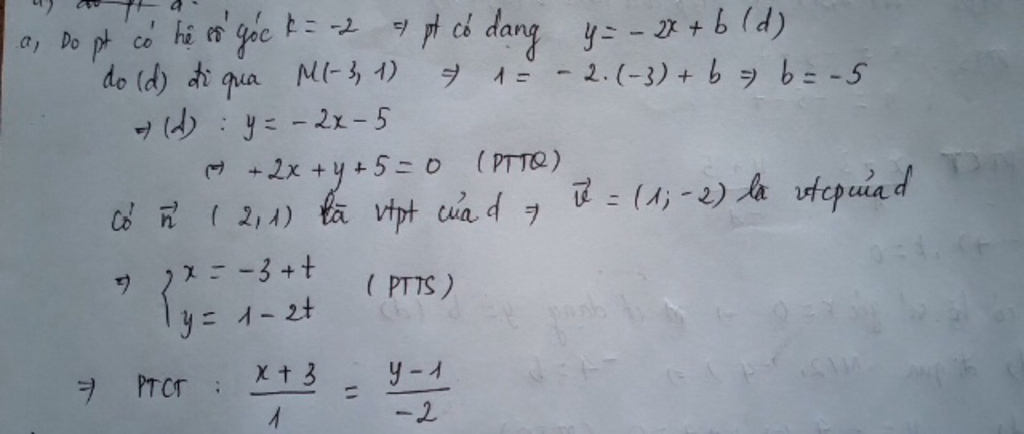 a, Do pt có hệ số góc k = -2 ⇒ pt có dạng y = -2x + b (d)
do (d) đi qua M(-3, 1) ⇒ 1 = -2.(-3) + b ⇒ b = -5
⇒ (d) : y = -2x - 5
⇔ +2x + y + 5 = 0 (PTTQ)
Có n⃗ (2, 1) là vtpt của d ⇒ u⃗ = (1; -2) là vtcp của d
⇒ { x = -3 + t
y = 1 - 2t (PTTS)
⇒ PTCT : (x + 3)/1 = (y - 1)/-2